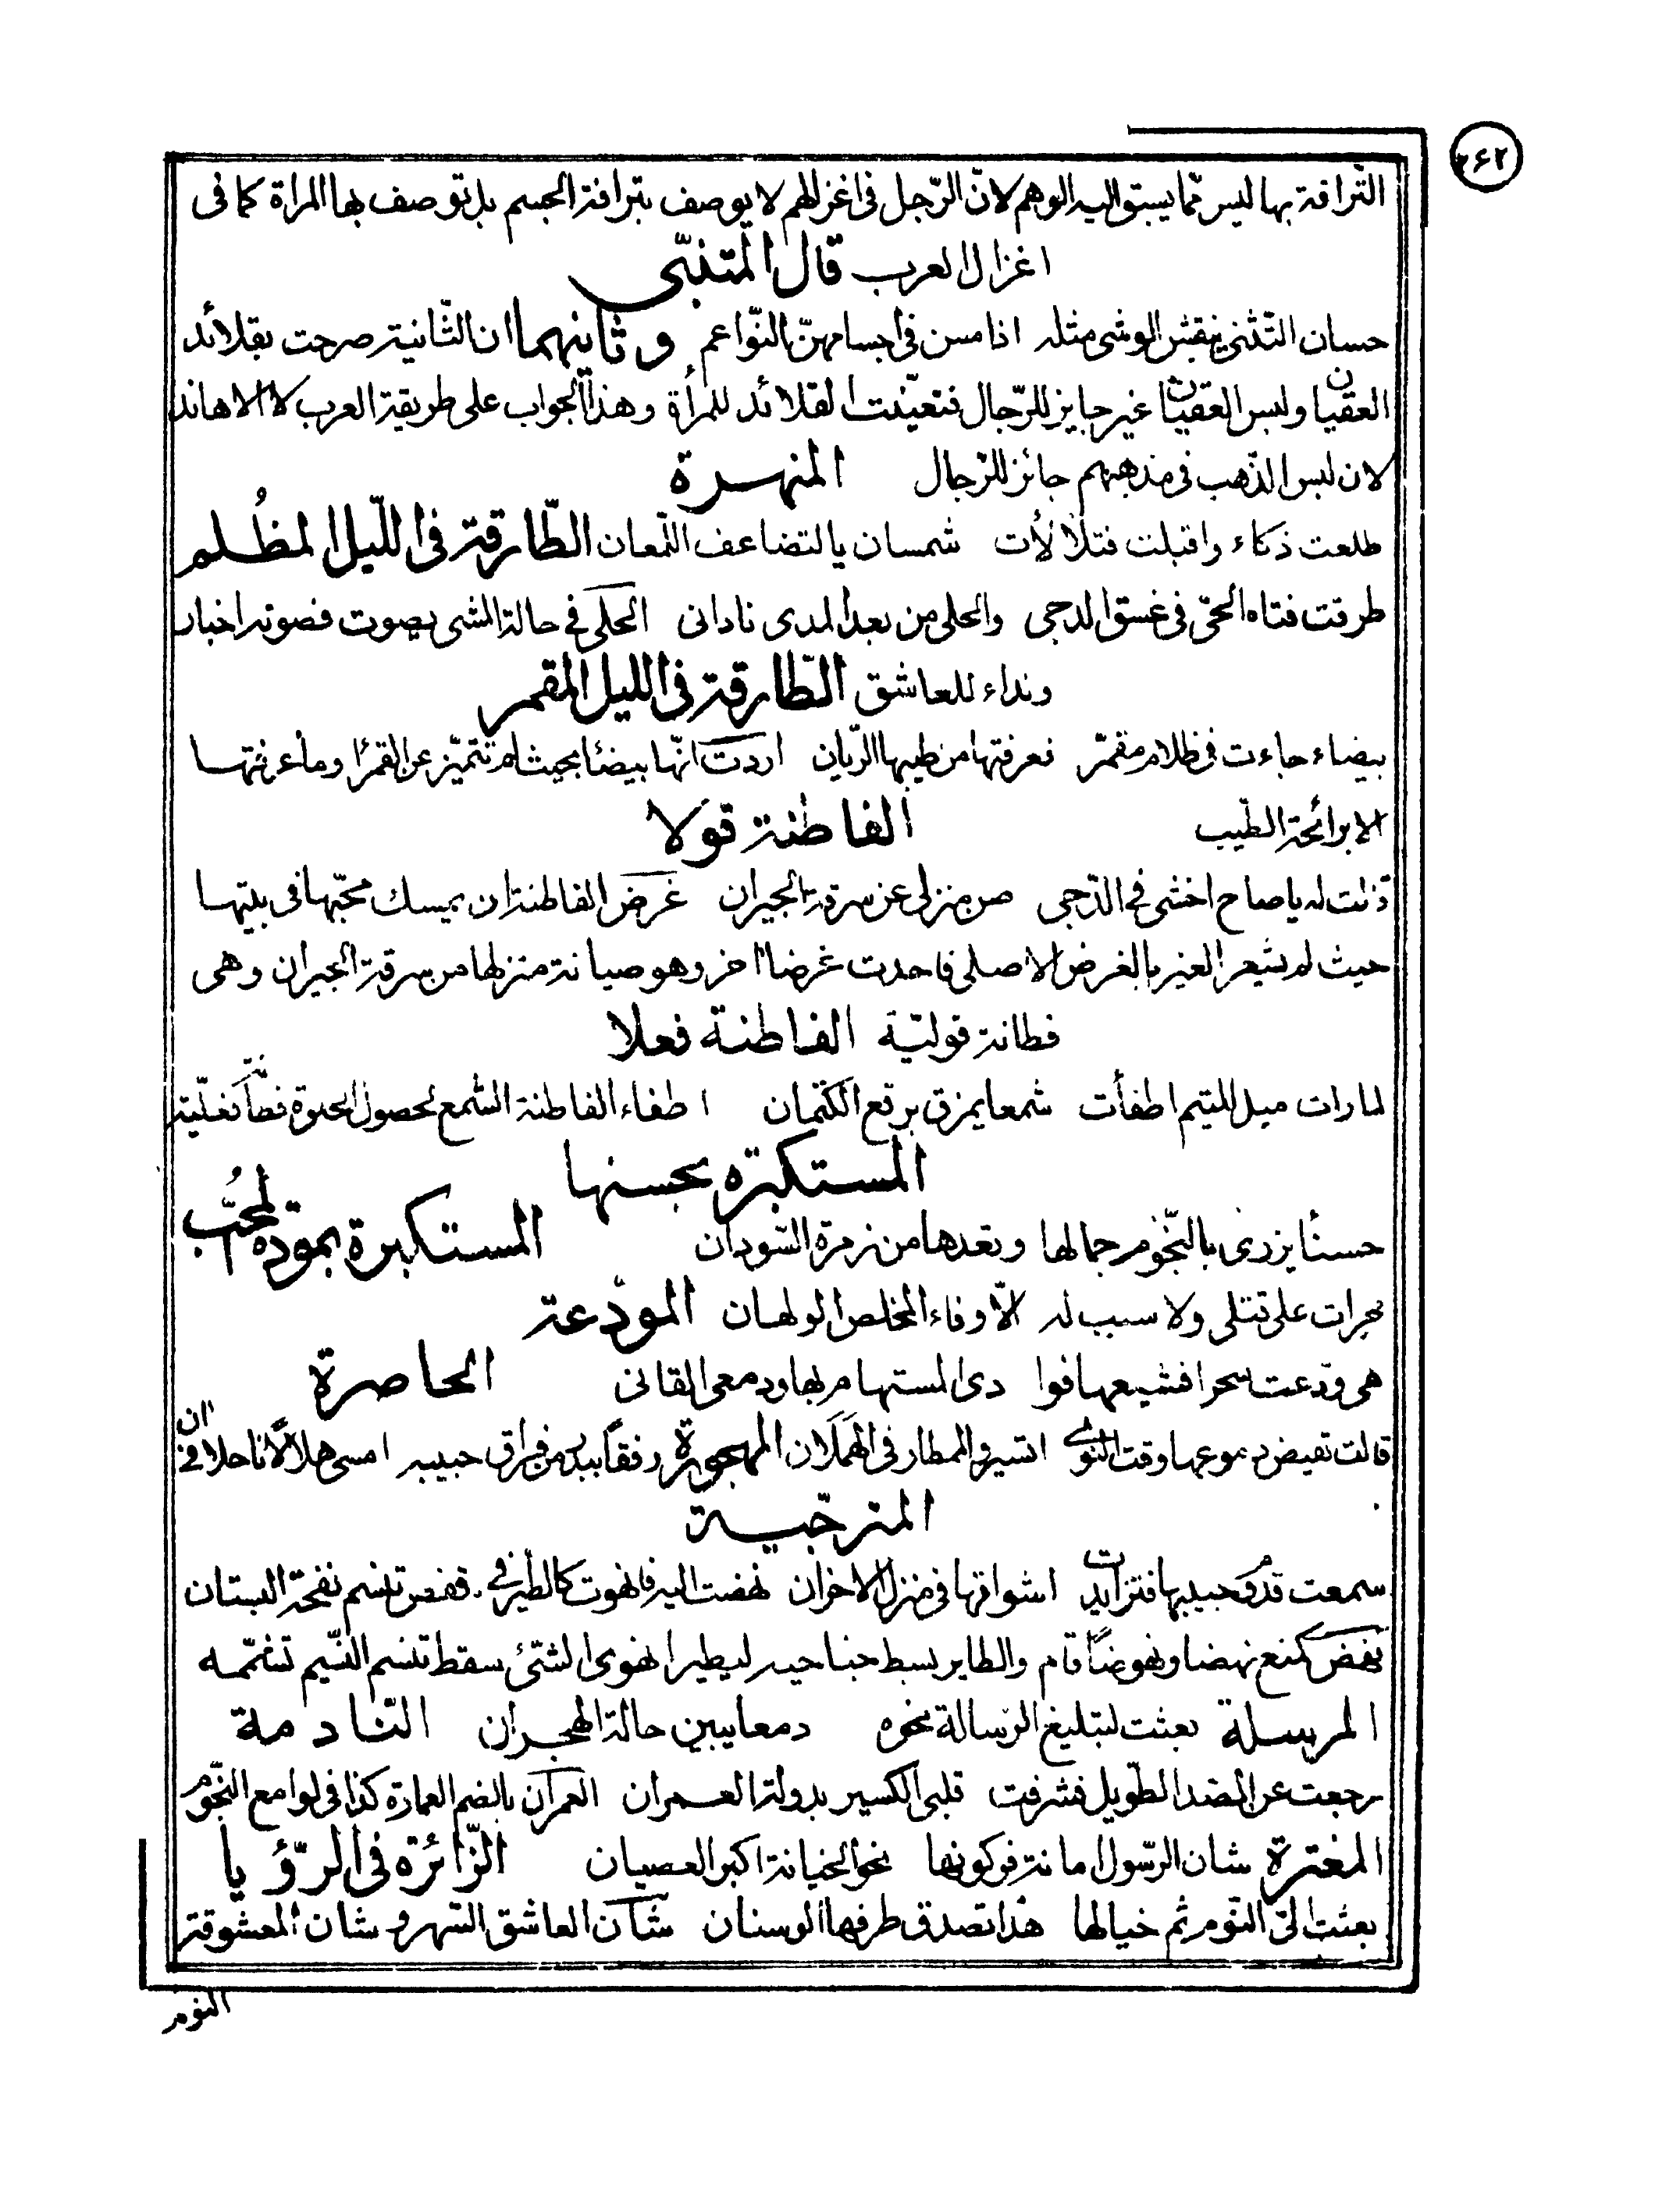 ٢٦٢
التّرافة بها ليس ممّا يسبق اليه الوهم لانّ الرّجل في اغزالهم لا يوصف بترافة الجسم بل توصف بها المراة كما في
اغزال العرب قال المتنبّي
حسان التّثنّي ينقش الوشي مثله اذا مسن في اجسامهنّ النّواعم وثانيهما ان الثّانية صرحت بقلائد
العقيان ولبس العقيان غير جايز للرّجال فتعيّنت القلائد للمرأة وهذا الجواب على طريقة العرب لا الاهاند
لان لبس الذّهب في مذهبهم جائز للرّجال المنهرة
طلعت ذكاء واقبلت فتلألأت شمسان يالتضاعف اللّمعان الطّارقة في اللّيل المظُلم
طرقت فتاه الحيّ في غسق الدجى والحلي من بعد المدى ناداني الحلي في حالة المشي يصوت فصوته اخبار
ونداء للعاشق الطّارقة في الليل المقمر
بيضاء جاءت في ظلام مقمّر فعرفتها من طيبها الريّان اردت انّها بيضا بحيث لم تتميّز عن القمرا وما عرفتها
الا برائحة الطّيب الفاطنة قولا
قالت له يا صاح اخشى في الدّجى صن منزلي عن سرقة الجيران غرض الفاطنة ان يمسك محبّها في بيتها
حيث لم يشعر الغير بالغرض الاصلي فاحدت غرضا اخر وهو صيانة منزلها من سرقة الجيران وهي
فطانة قوليّة الفاطنة فعلا
لما رات ميل المتيم اطفأت شمعا يمزق برقع الكتمان اطفاء الفاطنة الشّمع لحصول الخلوة فطانة فعليّة
المستكبرة بحسنها
حسنًا يزرى بالنّجوم جمالها وتعدها من زمرة السّودان المستكبرة بمودة المُحُبّ
نجرات على قتلي ولا سبب له الّا وفاء المخلص الولهان المودّعة
هي ودّعت سحرا فشيعها فوا دى المستهام بها ودمعي القاني الحاصرة
قالت تفيض دموعها وقت النوى اتسير والمطار في الهملان المهجورة رفقا ببدر من فراق حبيبه امسى هلالًا ناحلا في ان
المترجّية
سمعت قدوم حبيبها فتزايدت اشواقها في منزل الاخزان نهضت اليه فانهوت كالطّير في قفص تنسم نفحة البستان
نهض كمنع نهضا ونهوضًا قام والطاير بسط جناحيه ليطير انهوى الشئ سقط تنسم النّسيم تشمّمه
المرسلة بعثت لتبليغ الرّسالة نحوه دمعا يبين حالة الهجران النّادمة
رجعت عن الصّد الطّويل فشرفت قلبي الكسير بدولة العمران العمران بالضم العمارة كذا في لوامع النّجوم
المغترة شان الرّسول امانة فركونها نحو الخيانة اكبر العصيان الزّائرة في الرّؤيا
بعثت اليّ النّوم ثم خيالها هذا تصدق طرفها الوسنان شان العاشق السّهر وشان المعشوقة
النوم